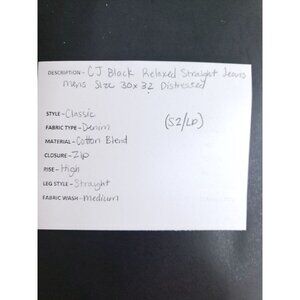 DESCRIPTION - CJ Black Relaxed Straight Jeans
Mens Size 30x32 Distressed
STYLE - Classic
(S2/LD)
FABRIC TYPE - Denim
MATERIAL - Cotton Blend
CLOSURE - Zip
RISE - High
LEG STYLE - Straight
FABRIC WASH - Medium